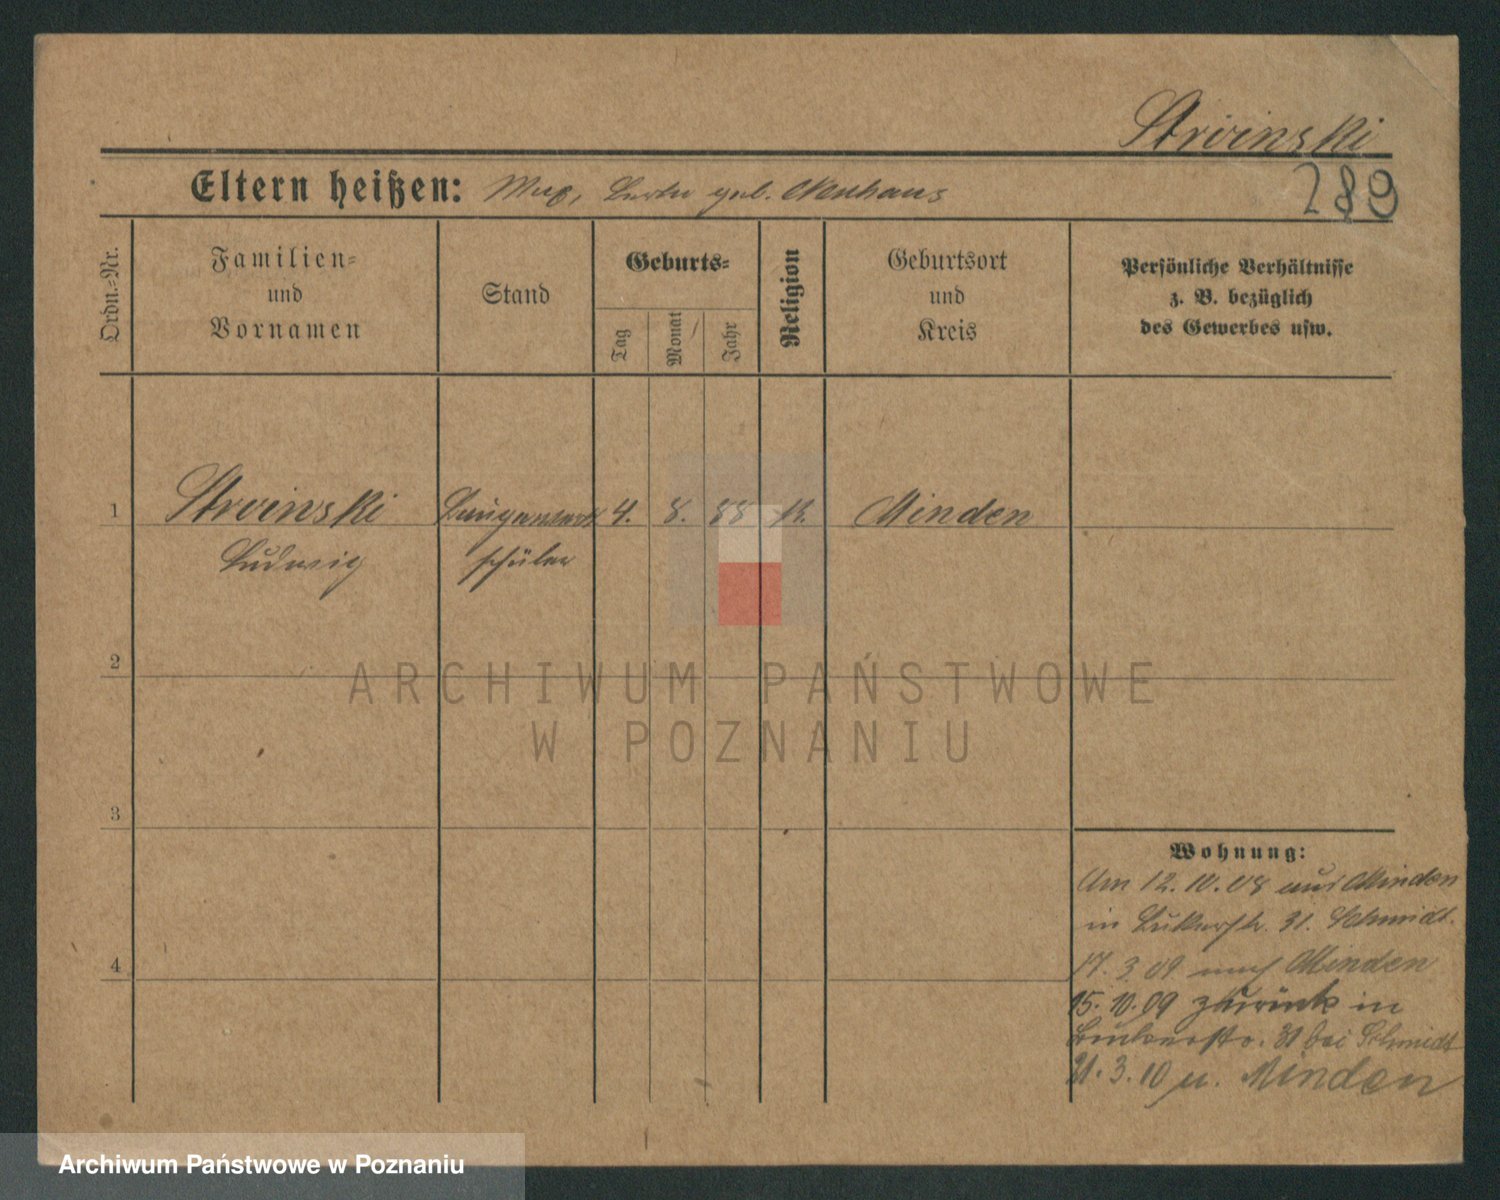 Strvinski
289
Eltern heißen: Max, geb. Neuhaus
Ordn.-Nr.
Familien-
und
Vornamen
Stand
Geburts-
Tag
Monat
Jahr
Religion
Geburtsort
und
Kreis
Persönliche Verhältnisse
z. B. bezüglich
des Gewerbes usw.
1
Strvinski
4. 8. 88 K. Minden
Ludwig
schüler
2
ARCHIWUM PAŃSTWOWE
W POZNANIU
3
Wohnung:
Am 12.10.08 aus Minden
in 31. Schmidt.
4
17.3.09 nach Minden
15.10.09 zurück in
31 bei Schmidt
21.3.10 n. Minden
Archiwum Państwowe w Poznaniu